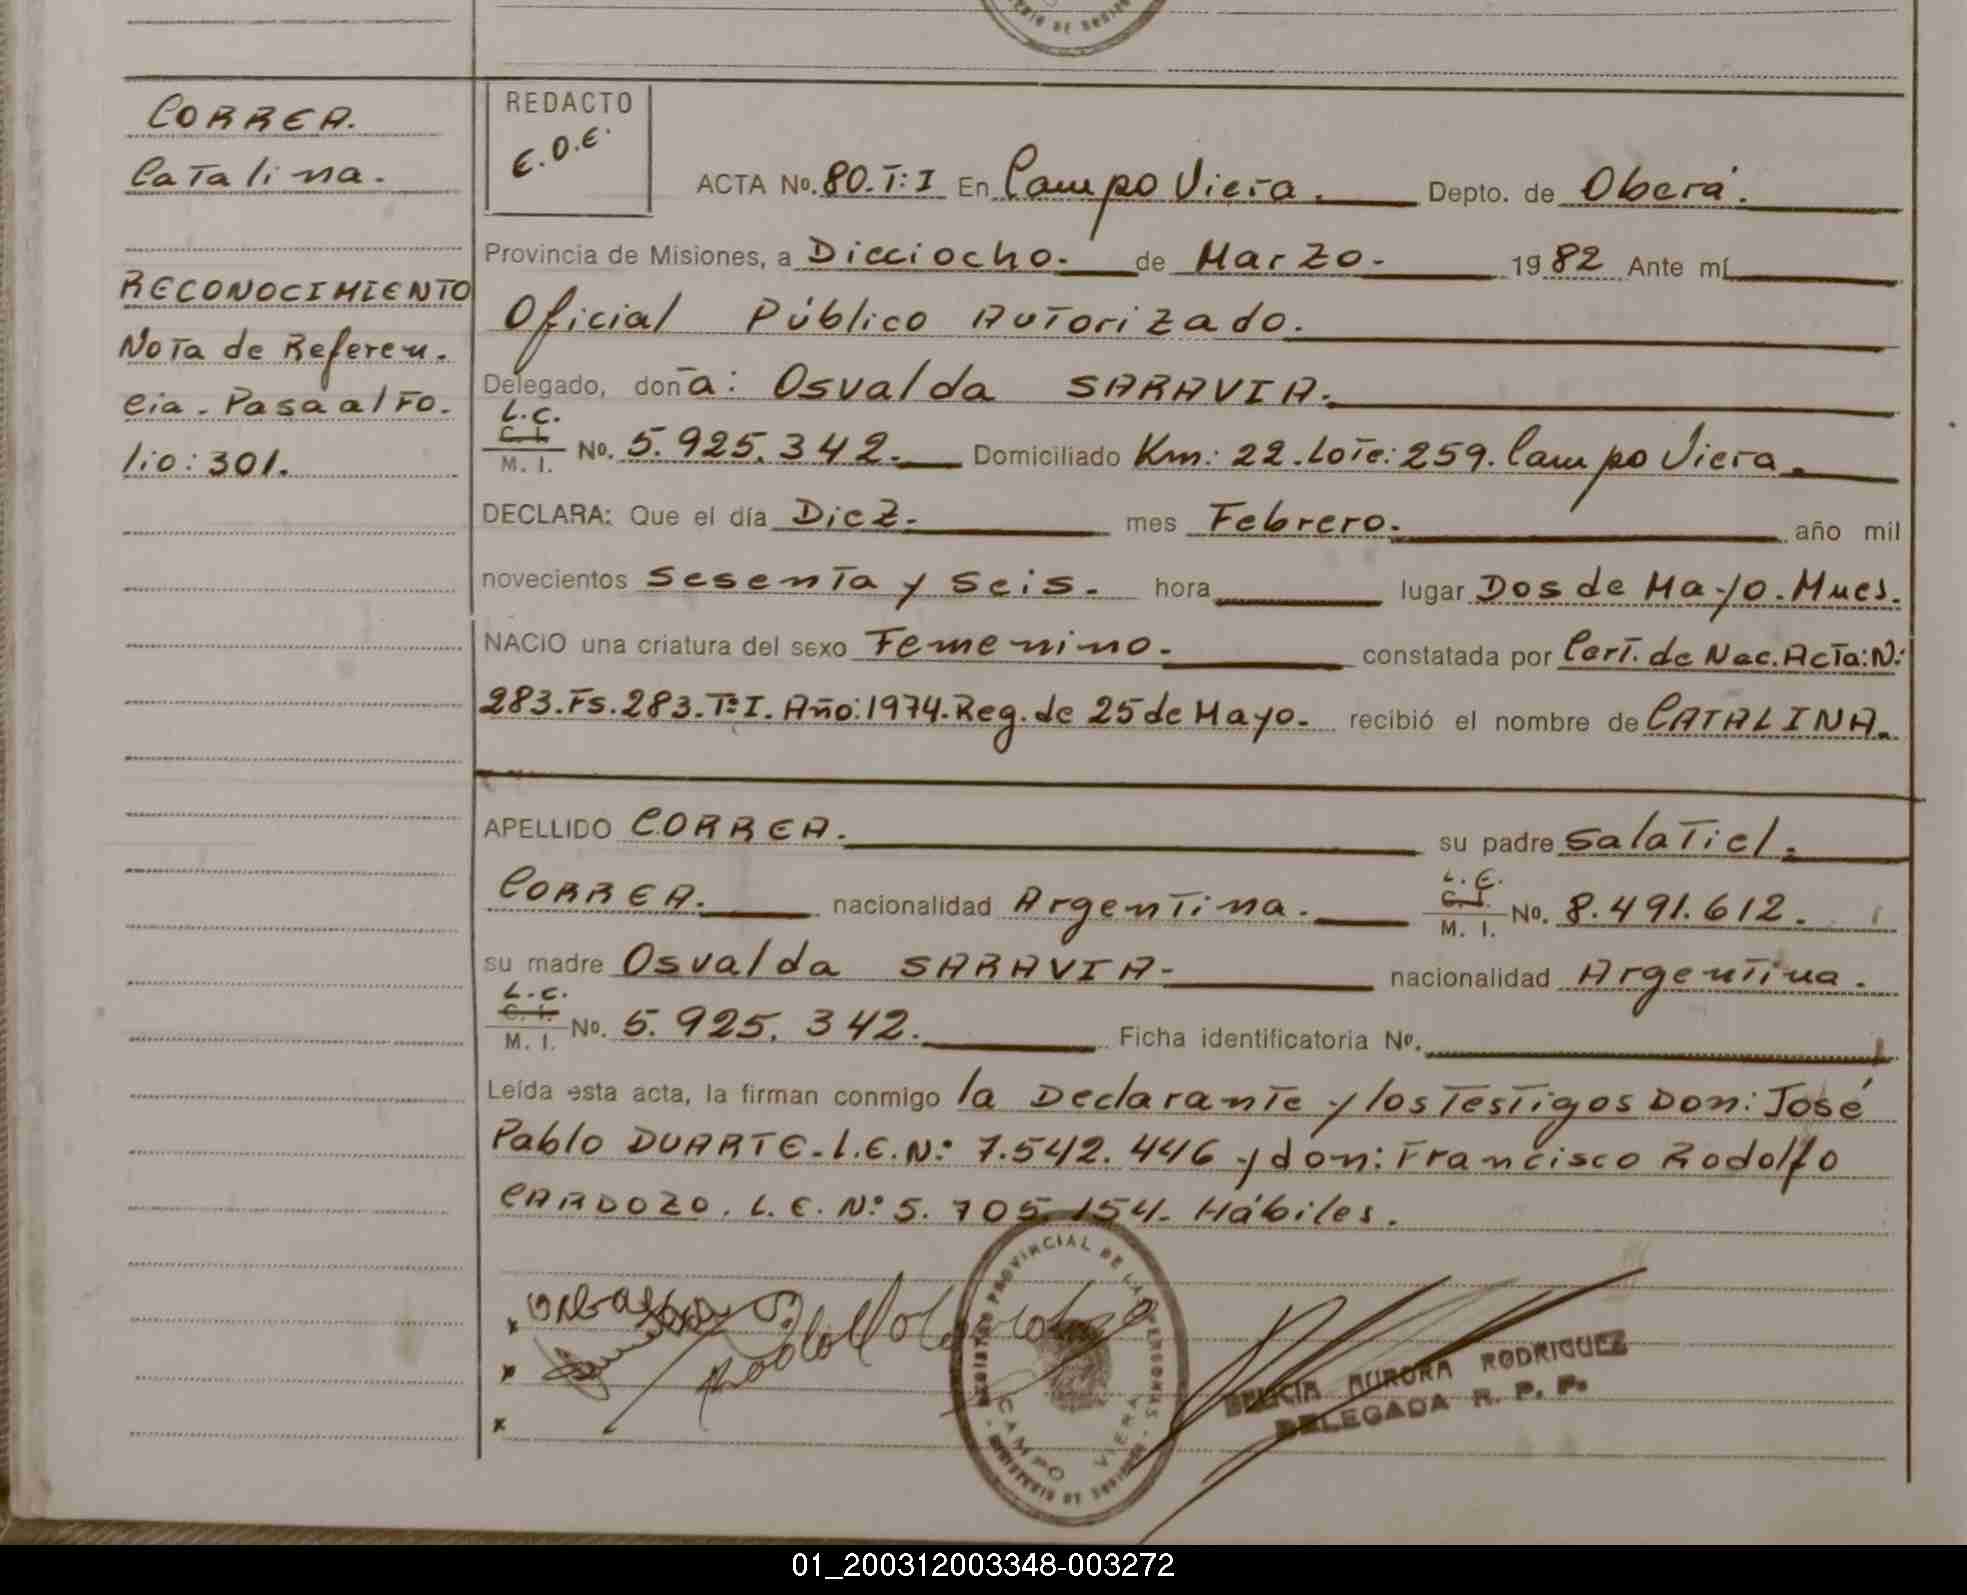 CORREA.
Catalina.
RECONOCIMIENTO
Nota de Referen.
cia. Pasa al Fo.
lio: 301.
REDACTO
E.O.E.
ACTA Nº. 80.T:I En Campo Viera. Depto. de Oberá.
Provincia de Misiones, a Dieciocho. de Marzo. 1982 Ante mí
Oficial Público Autorizado.
Delegado, doña: Osvalda SARAVIA.
L.C.
C. I.
M. I. Nº. 5.925.342. Domiciliado Km: 22. Lote: 259. Campo Viera.
DECLARA: Que el día Diez. mes Febrero. año mil
novecientos Sesenta y Seis. hora lugar Dos de Mayo. Mnes.
NACIO una criatura del sexo Femenino. constatada por Cert. de Nac. Acta: Nº:
283. Fs. 283. Tº I. Año: 1974. Reg. de 25 de Mayo. recibió el nombre de CATALINA.
APELLIDO CORREA. su padre Salatiel.
CORREA. nacionalidad Argentina. L.E.
C. I.
M. I. Nº. 8.491.612.
su madre Osvalda SARAVIA- nacionalidad Argentina.
L.C.
C. I.
M. I. Nº. 5.925.342. Ficha identificatoria Nº.
Leída esta acta, la firman conmigo la Declarante y los Testigos Don: José
Pablo DUARTE. L.E. Nº: 7.542.446 y don: Francisco Rodolfo
CARDOZO. L.E. Nº 5.705.154. Hábiles.
REGISTRO PROVINCIAL DE LAS PERSONAS
CAMPO VIERA
MINISTERIO DE
AURORA RODRIGUEZ
DELEGADA R. P. P.
01_200312003348-003272